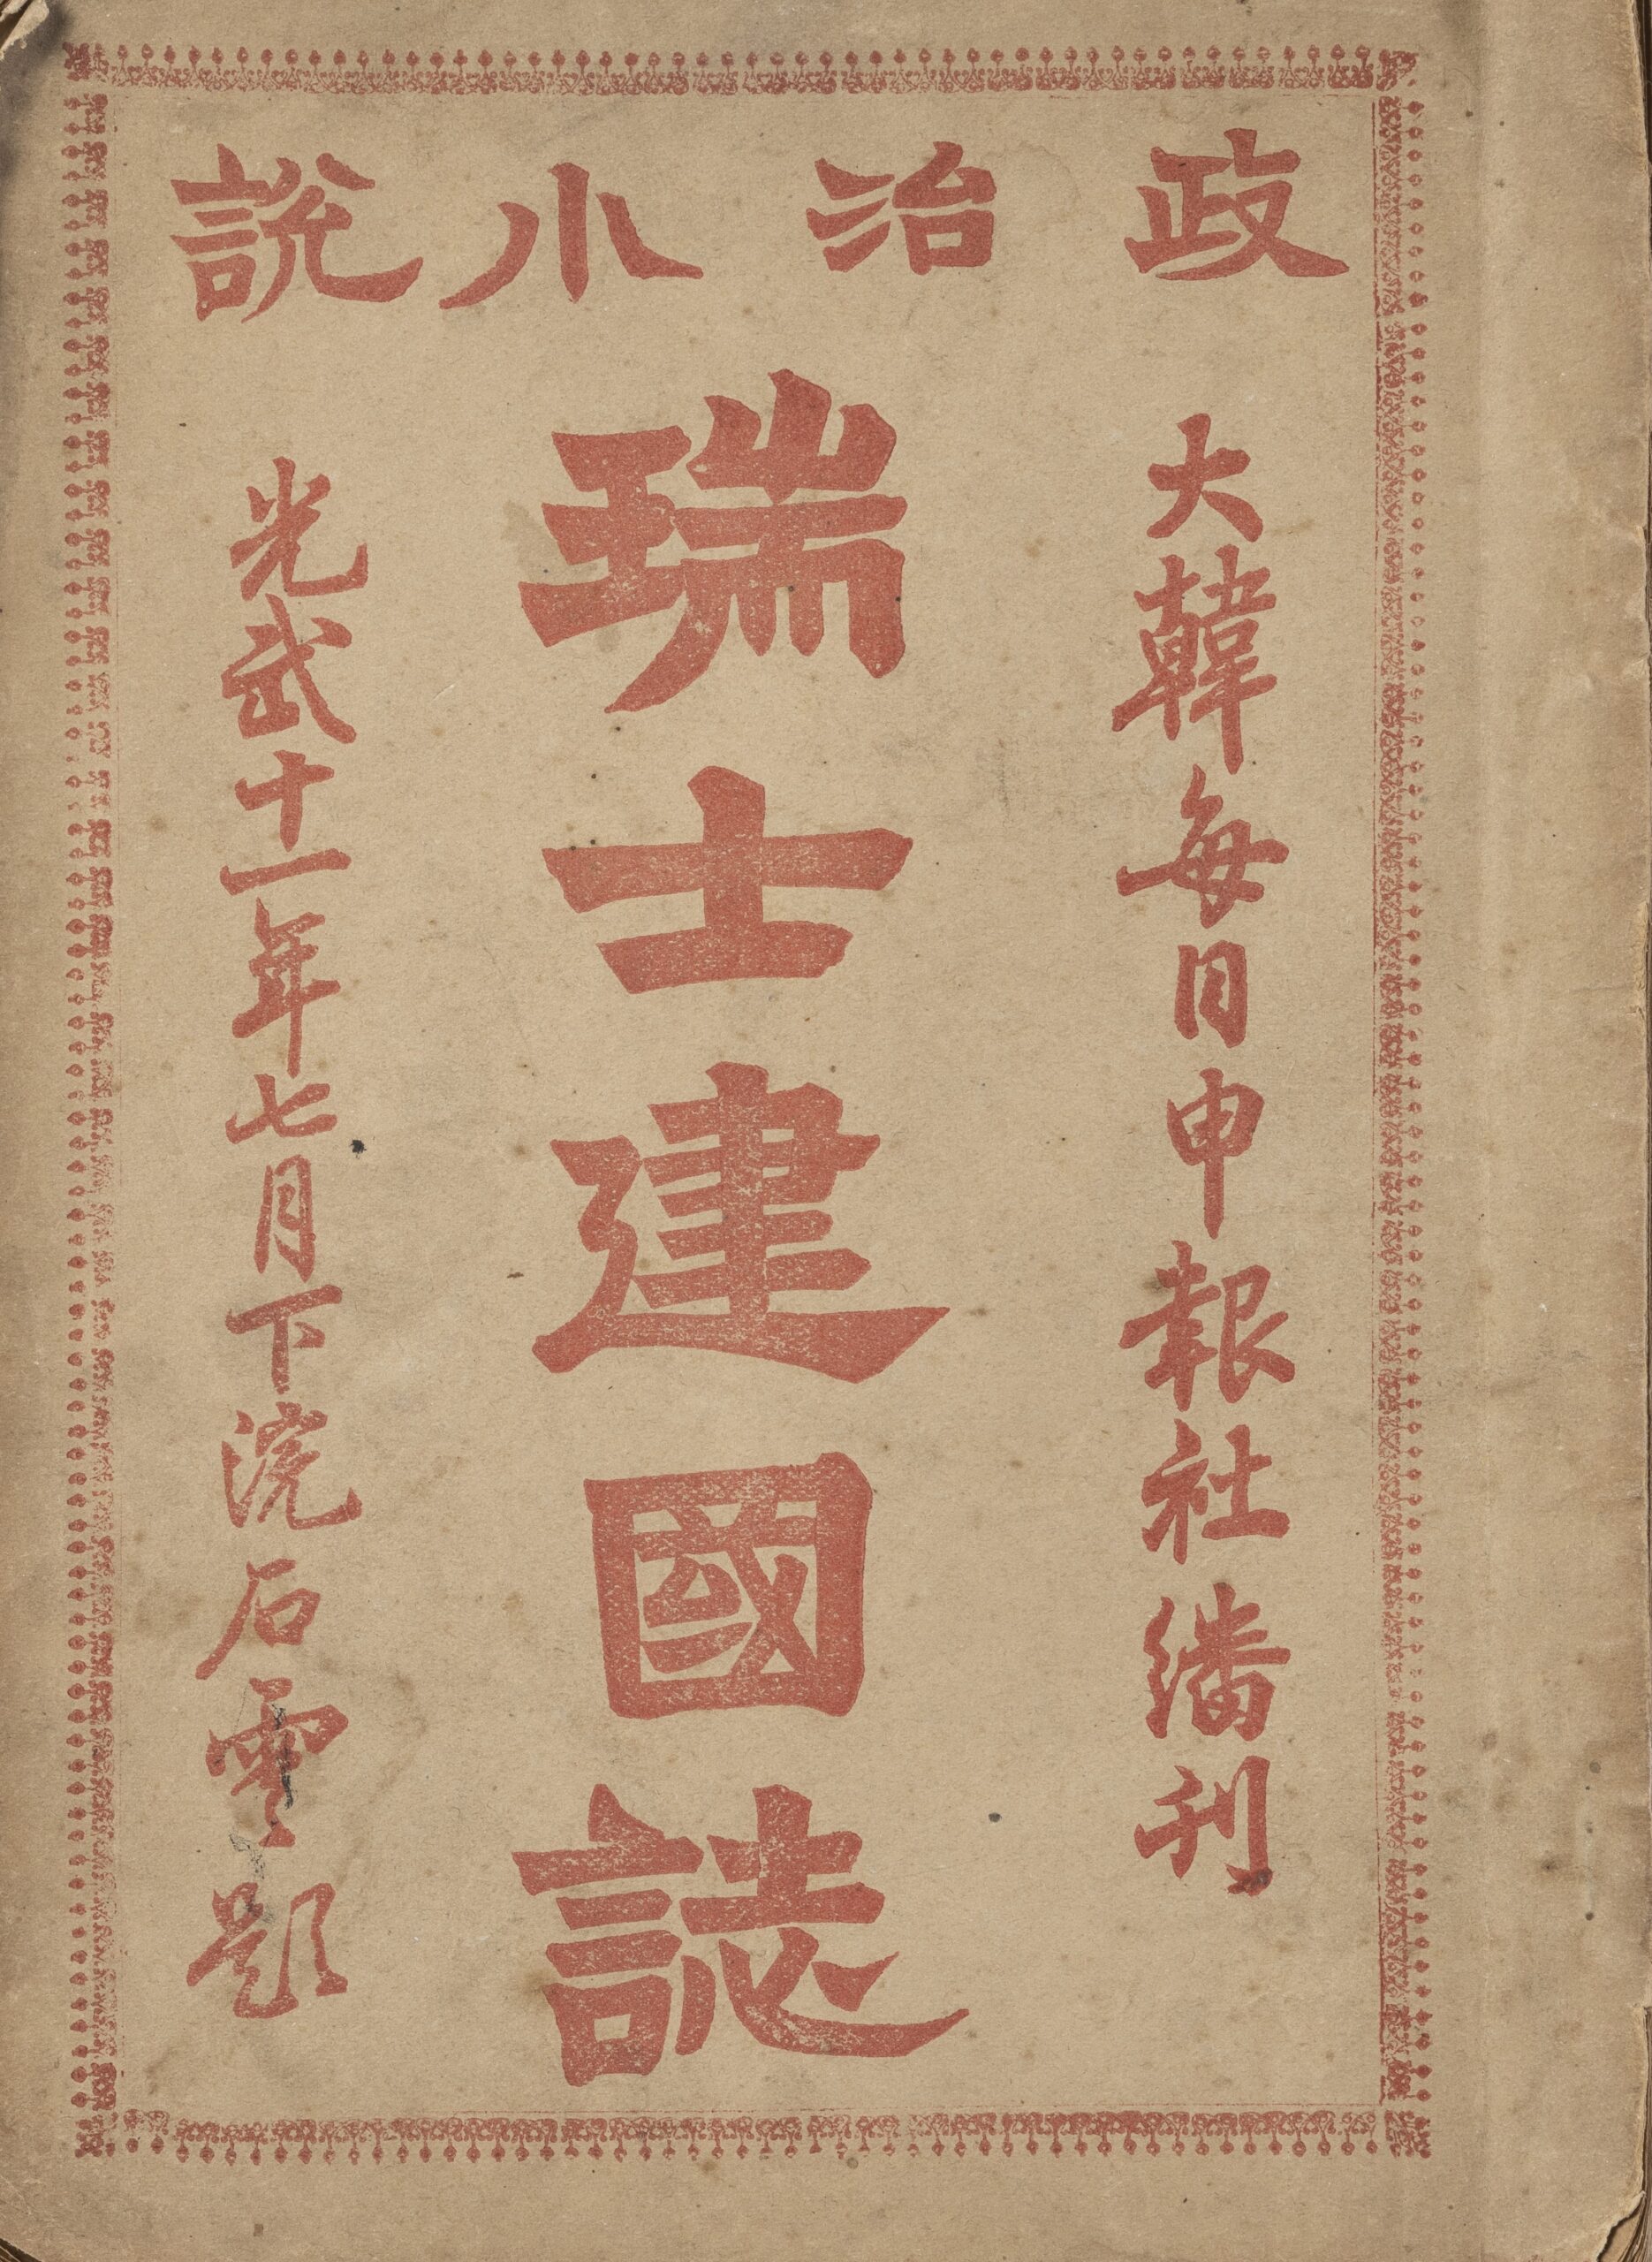 政治小說
大韓每日申報社繙刊
瑞士建國誌
光武十一年七月下浣石雲題